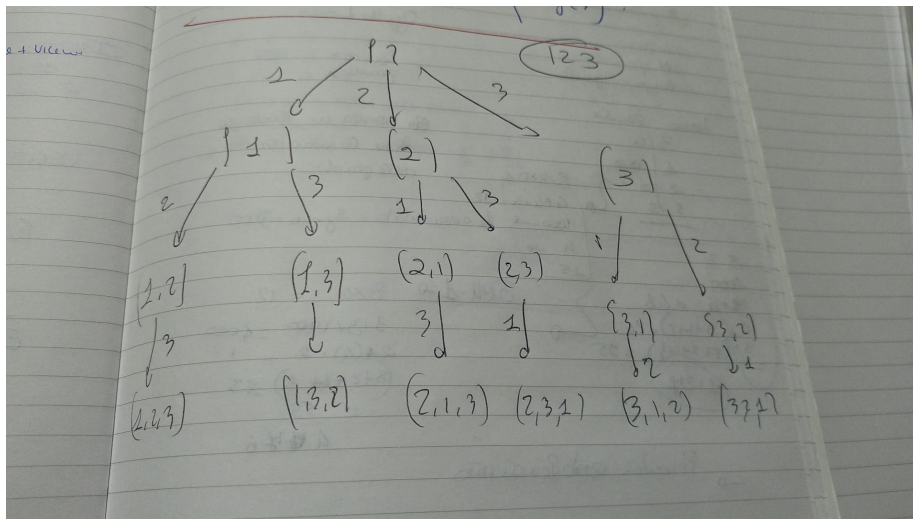 123
[ ]
1 2 3
[1] (2) (3)
2 3 1 3 1 2
[1,2] [1,3] (2,1) (2,3) {3,1} {3,2)
3 3 1 2 1
(1,2,3) (1,3,2) (2,1,3) (2,3,1) (3,1,2) (3,2,1)